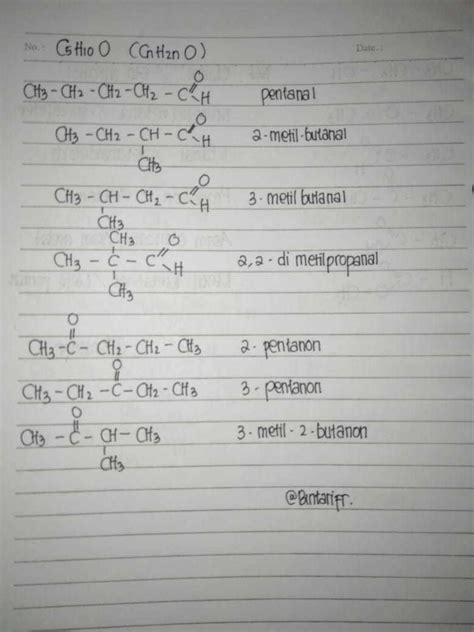 No.: C5H10O (CnH2nO) Date.:
O
CH3-CH2-CH2-CH2-C H pentanal
O
CH3-CH2-CH-C H 2-metil-butanal
CH3
O
CH3-CH-CH2-C H 3-metil butanal
CH3
CH3 O
CH3-C-C H 2,2-dimetilpropanal
CH3
O
CH3-C-CH2-CH2-CH3 2-pentanon
O
CH3-CH2-C-CH2-CH3 3-pentanon
O
CH3-C-CH-CH3 3-metil-2-butanon
CH3